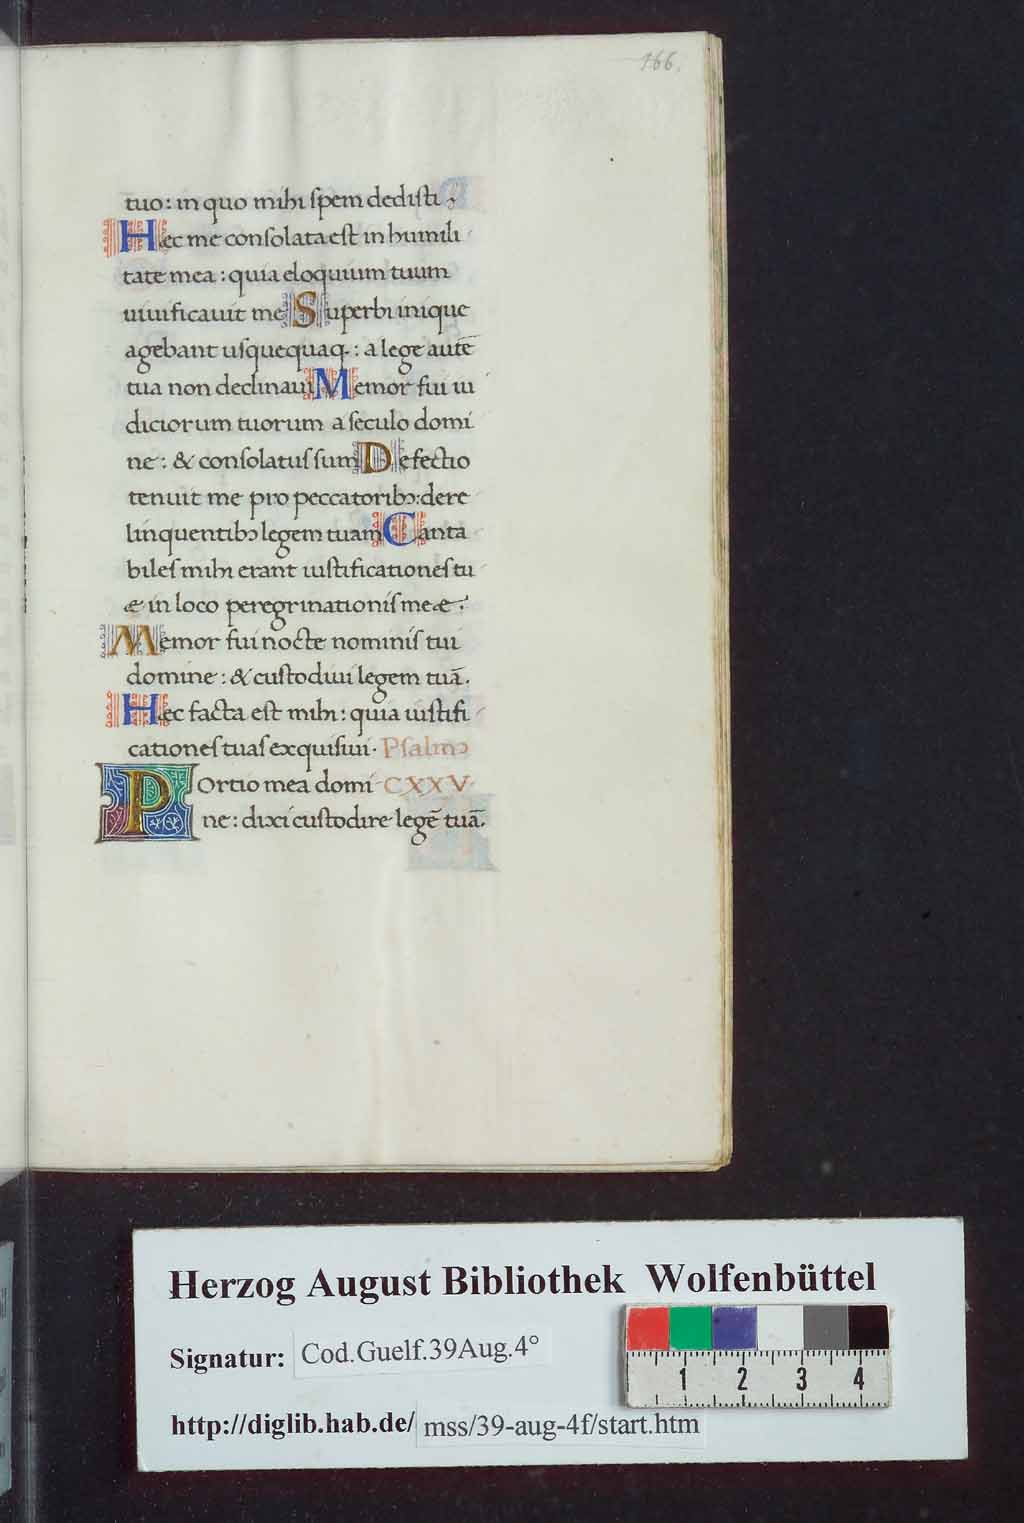 166.
tuo: in quo mihi spem dedisti.
Hec me consolata est in humili
tate mea: quia eloquium tuum
uiuificauit me Superbi inique
agebant usquequaq.: a lege autē
tua non declinaui Memor fui iu
diciorum tuorum a seculo domi
ne: & consolatus sum Defectio
tenuit me pro peccatoribꝫ: dere
linquentibꝫ legem tuam Canta
biles mihi erant iustificationes tu
æ in loco peregrinationis meæ.
Memor fui nocte nominis tui
domine: & custodiui legem tuā.
Hec facta est mihi: quia iustifi
cationes tuas exquisiui. Psalmꝰ
Portio mea domi CXXV.
ne: dixi custodire legē tuā.
Herzog August Bibliothek Wolfenbüttel
Signatur: Cod.Guelf.39Aug.4°
1 2 3 4
http://diglib.hab.de/mss/39-aug-4f/start.htm